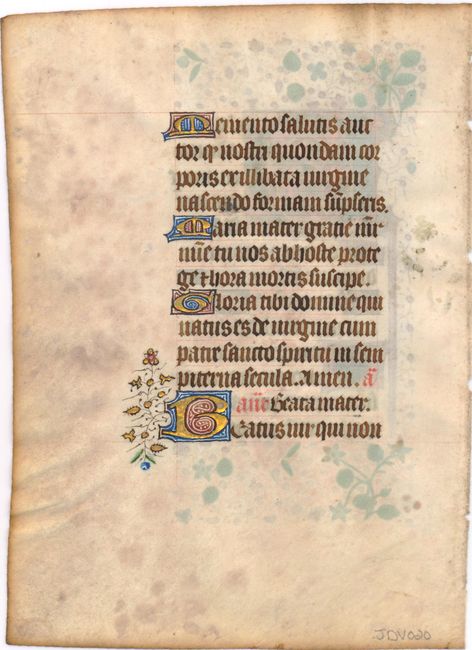 Memento salutis auc
tor qr nostri quondam cor
poris ex illibata uirgine
nascendo formam supseris.
Maria mater gratie mīr
mīe tu nos ab hoste prote
ge et hora mortis suscipe.
Gloria tibi domine qui
natus es de uirgine cum
patre sancto spiritu in sem
piterna secula. Amen. a͞
ane Beata mater.
Beatus uir qui non
JDV020